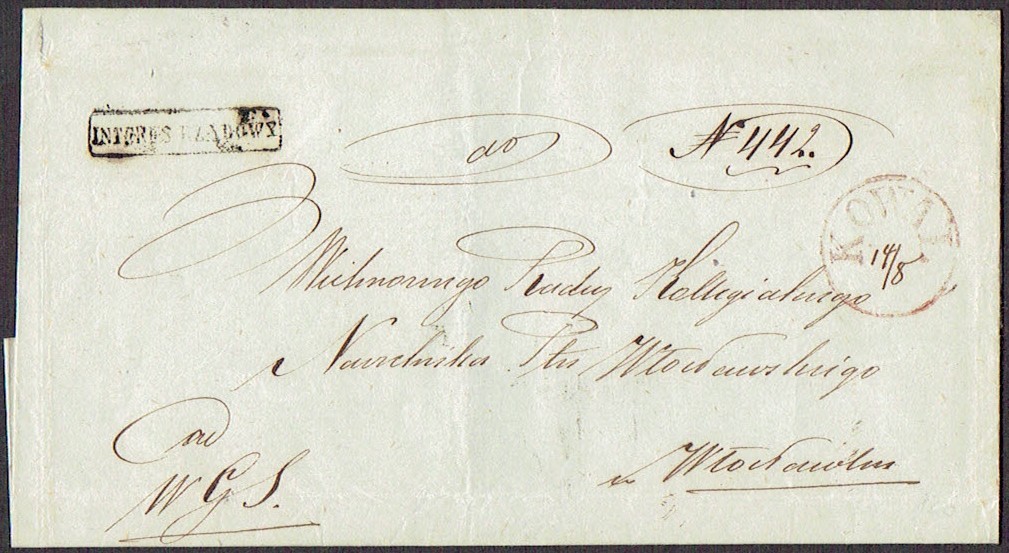 INTERES RZĄDOWY
do № 442.
KOWAL
14/8
Wielmożnego Radcy Kollegialnego
Naczelnika Ptu Włocławskiego
od
W G S.
w Włocławku